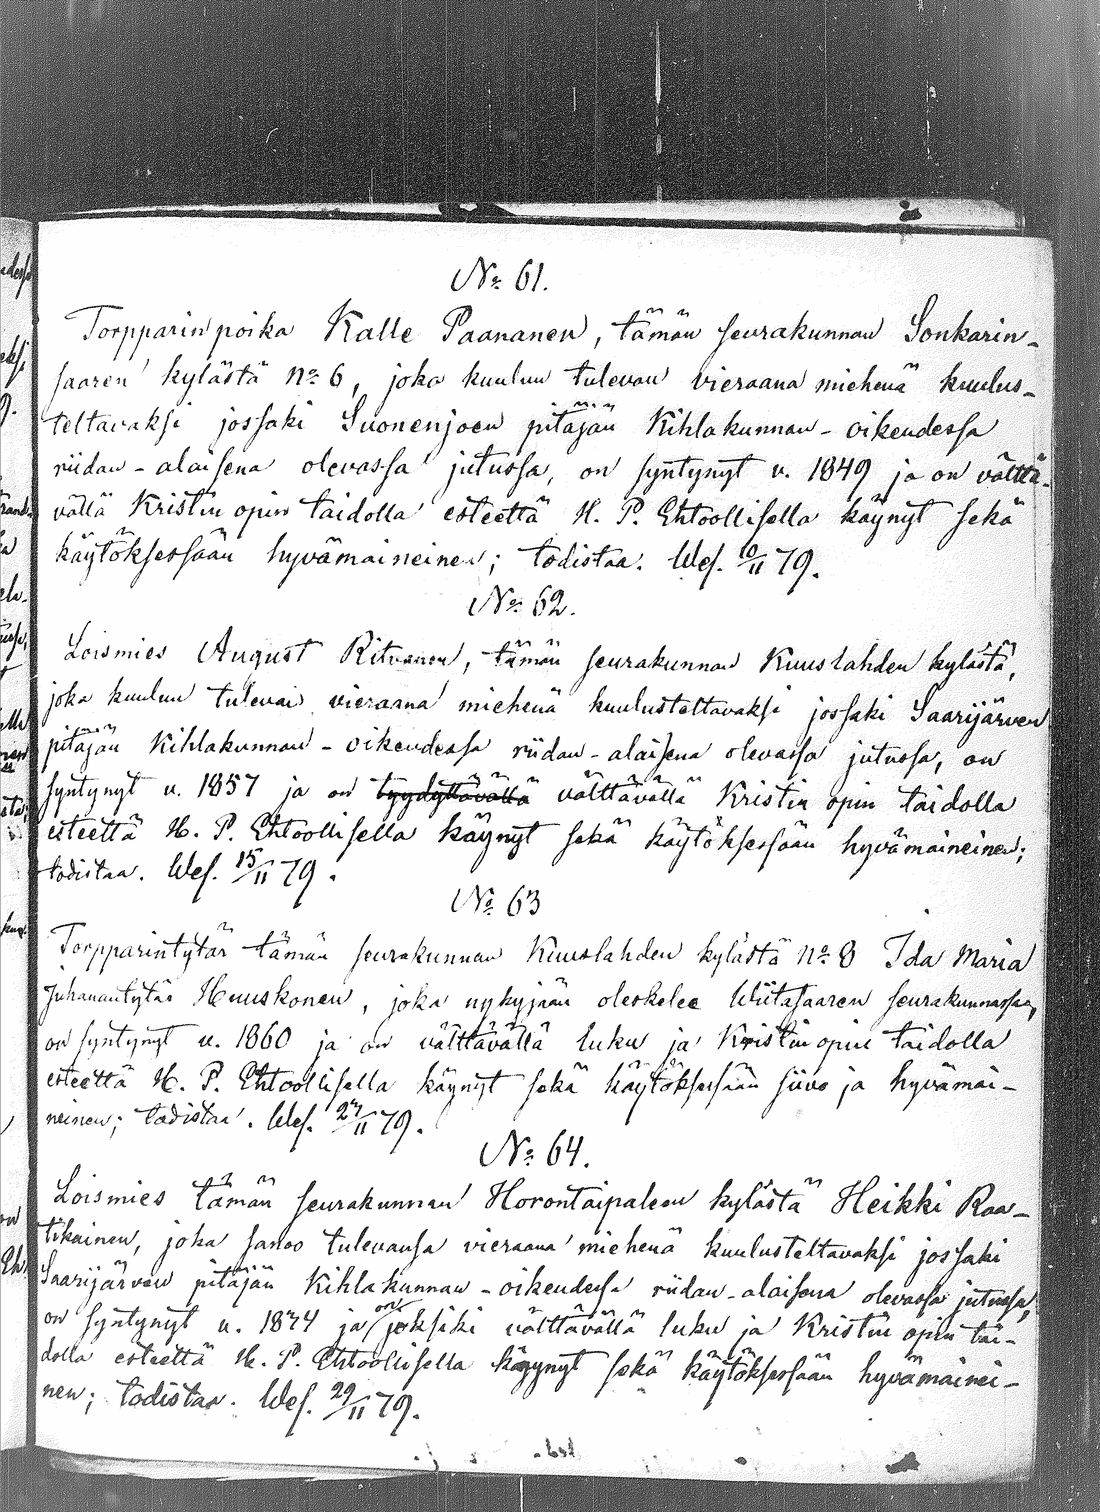 No 61.
Torpparin poika Kalle Paananen, tämän seurakunnan Sonkarin-
saaren kylästä no 6, joka kuuluu tulevan vieraana miehenä kuulus-
teltavaksi jossaki Suonenjoen pitäjän Kihlakunnan-oikeudessa
riidan-alaisena olevassa jutussa, on syntynyt v. 1849 ja on välttä-
vällä Kristin opin taidolla esteettä H. P. Ehtoollisella käynyt sekä
käytöksessään hyvämaineinen; todistaa. Wes. /11 79.
No 62.
Loismies August Ritvanen, tämän seurakunnan Kuuslahden kylästä,
joka kuuluu tulevan vieraana miehenä kuulusteltavaksi jossaki Saarijärven
pitäjän Kihlakunnan-oikeudessa riidan-alaisena olevassa jutussa, on
syntynyt v. 1857 ja on tyydyttävällä välttävällä Kristin opin taidolla
esteettä H. P. Ehtoollisella käynyt sekä käytöksessään hyvämaineinen;
todistaa. Wes. 15/11 79.
No 63
Torpparintytär tämän seurakunnan Kuuslahden kylästä no 8 Ida Maria
Juhanantytär Huuskonen, joka nykyjään oleskelee Wiitasaaren seurakunnassa,
on syntynyt v. 1860 ja on välttävällä luku ja Kristin opin taidolla
esteettä H. P. Ehtoollisella käynyt sekä käytöksessään siivo ja hyvämai-
neinen; todistaa. Wes. 27/11 79.
No 64.
Loismies tämän seurakunnan Horontaipaleen kylästä Heikki Raa-
tikainen, joka sanoo tulevansa vieraana miehenä kuulusteltavaksi jossaki
Saarijärven pitäjän Kihlakunnan-oikeudessa riidan-alaisena olevassa jutussa,
on syntynyt v. 1844 ja on joksiki välttävällä luku ja Kristin opin tai-
dolla esteettä H. P. Ehtoollisella käynyt sekä käytöksessään hyvämainei-
nen; todistaa. Wes. 29/11 79.